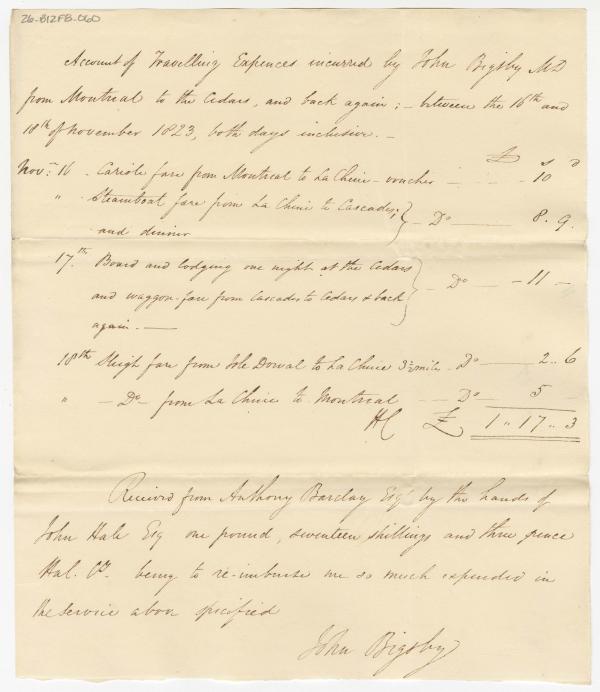 26-B12F8-060
Account of Travelling Expences incurred by John Bigsby MD
from Montreal to the Cedars, and back again; – between the 16th and
18th of November 1823, both days inclusive. –
£ s d
Novr. 16 . Cariole fare from Montreal to La Chine – voucher – – – 10
" . Steamboat fare from La Chine to Cascades; } – Do – 8 . 9.
and dinner
17.th Board and lodging one night at the Cedars } – Do – – 11 –
and waggon-fare from Cascades to Cedars & back
again. –
18th Sleigh fare from Isle Dorval to La Chine 3½ miles . Do – 2 .. 6
" – Do – from La Chine to Montreal – – Do – 5
HC £ 1 " 17 .. 3
Received from Anthony Barclay Esqr by the hands of
John Hale Esq one pound, seventeen shillings and three pence
Hal. Cy. being to re-imburse me so much expended in
the service above specified
John Bigsby